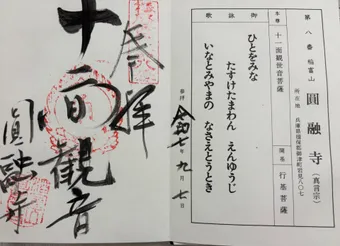 第八番 稲富山
圓融寺
(真言宗)
所在地
兵庫県揖保郡御津町岩見八〇七
本尊
十一面観世音菩薩
開基
行基菩薩
御詠歌
ひとをみな
たすけたまわん えんゆうじ
いなとみやまの なさえとうとき
参拝
令和七年九月七日
奉拝
十一面観音
圓融寺